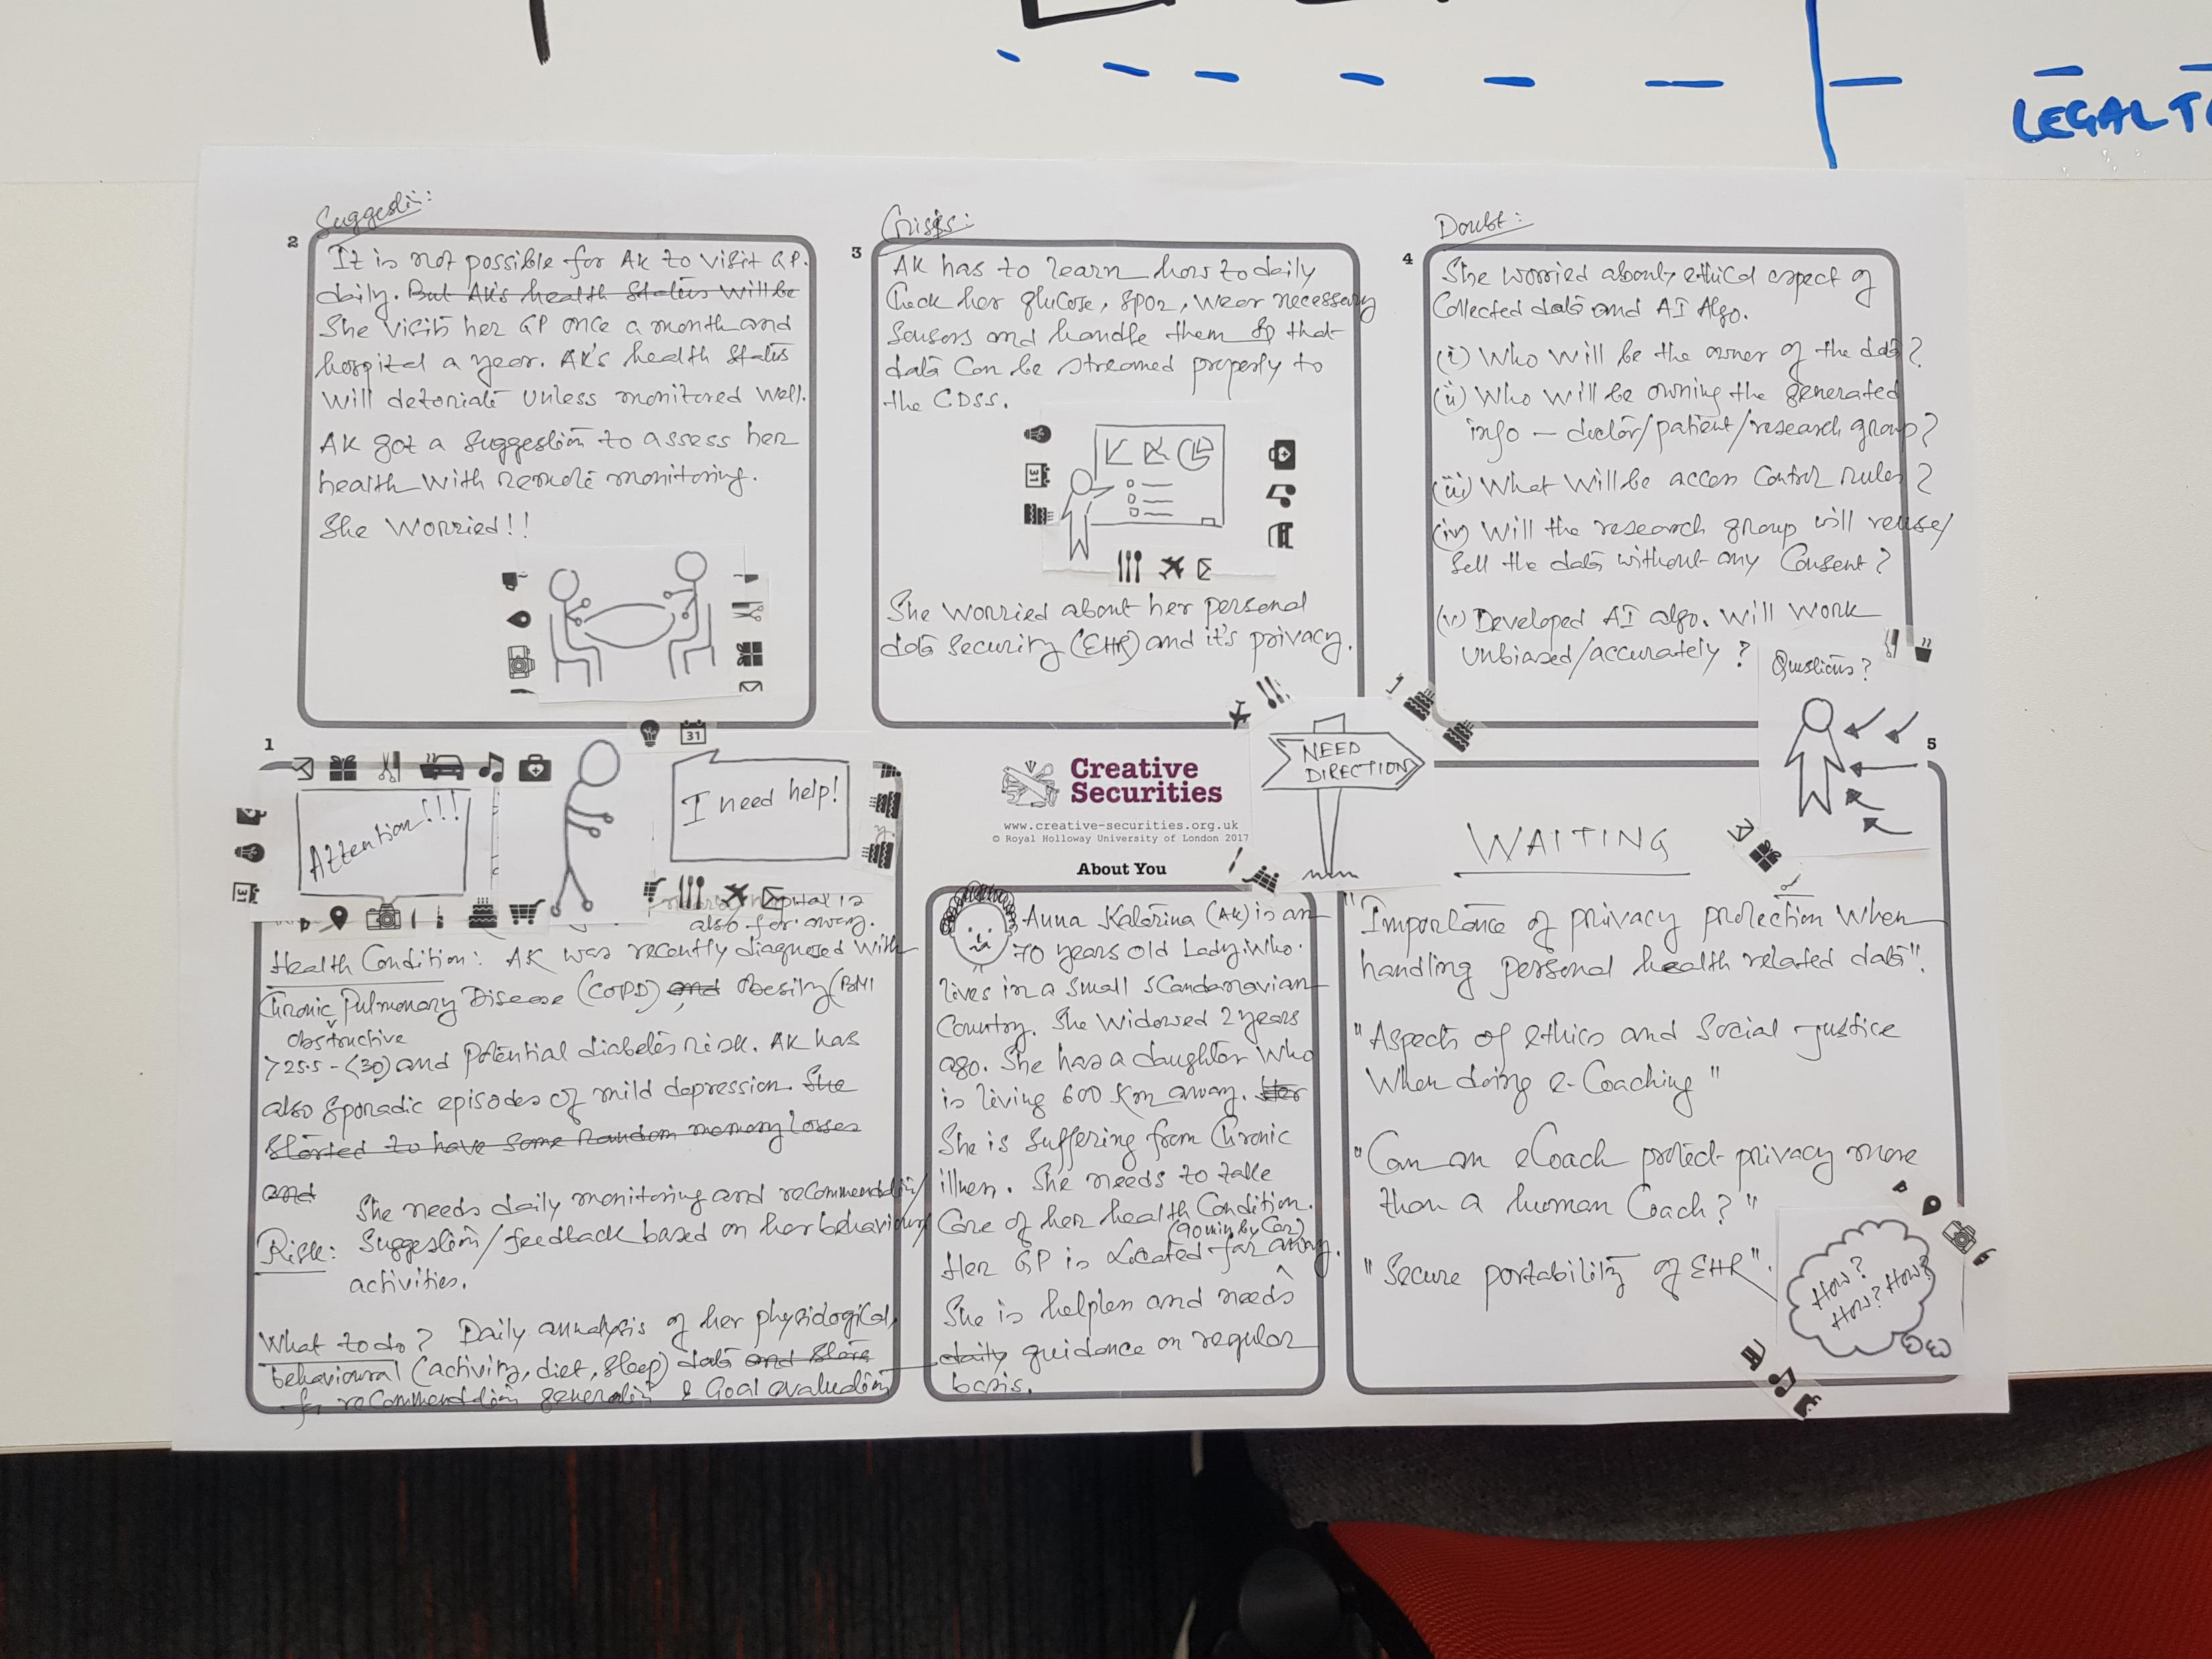 LEGAL
Suggestin:
2
It is not possible for AK to visit GP.
daily. But AK's health status will be
She visits her GP once a month and
hospital a year. AK's health status
will detoriate unless monitored well.
AK got a suggestion to assess her
health with remote monitoring.
She worried!!
Crisis:
3
AK has to learn how to daily
Check her glucose, SPO2, wear necessary
sensors and handle them so that
data can be streamed properly to
the CDSS.
She worried about her personal
data security (EHR) and it's privacy.
Doubt:
4
She worried about ethical aspect of
Collected data and AI Algo.
(i) Who will be the owner of the data?
(ii) Who will be owning the generated
info – doctor/patient/research group?
(iii) What will be access control rules?
(iv) Will the research group will reuse/
sell the data without any Consent?
(v) Developed AI algo. will work
unbiased/accurately?
Questions?
1
Attention!!!
31
I need help!
hospital is
also far away.
Health Condition: AK was recently diagnosed with
Chronic Pulmonary Disease (COPD) and Obesity (BMI
obstructive
>25.5 - <30) and potential diabetes risk. AK has
also sporadic episodes of mild depression. She
started to have some random memory losses
and
She needs daily monitoring and recommendation/
Risk: Suggestion/feedback based on her behaviour/
activities.
What to do? Daily annalysis of her physiological,
behavioural (activity, diet, sleep) data and store
for recommendation generation & Goal evaluation
Creative
Securities
www.creative-securities.org.uk
© Royal Holloway University of London 2017
About You
NEED
DIRECTION
Anna Katarina (AK) is an
70 years old Lady. Who
lives in a small scandanavian
Country. She widowed 2 years
ago. She has a daughter who
is living 600 Km away. Her
She is suffering from Chronic
illness. She needs to take
Care of her health Condition.
(90 min by Car)
Her GP is located far away.
She is helpless and needs
daily guidance on regular
basis.
5
WAITING
"Importance of privacy protection when
handling personal health related data".
"Aspects of ethics and Social justice
When doing e-Coaching"
"Can an eCoach protect privacy more
than a human Coach?"
"Secure portability of EHR".
How?
How? How?